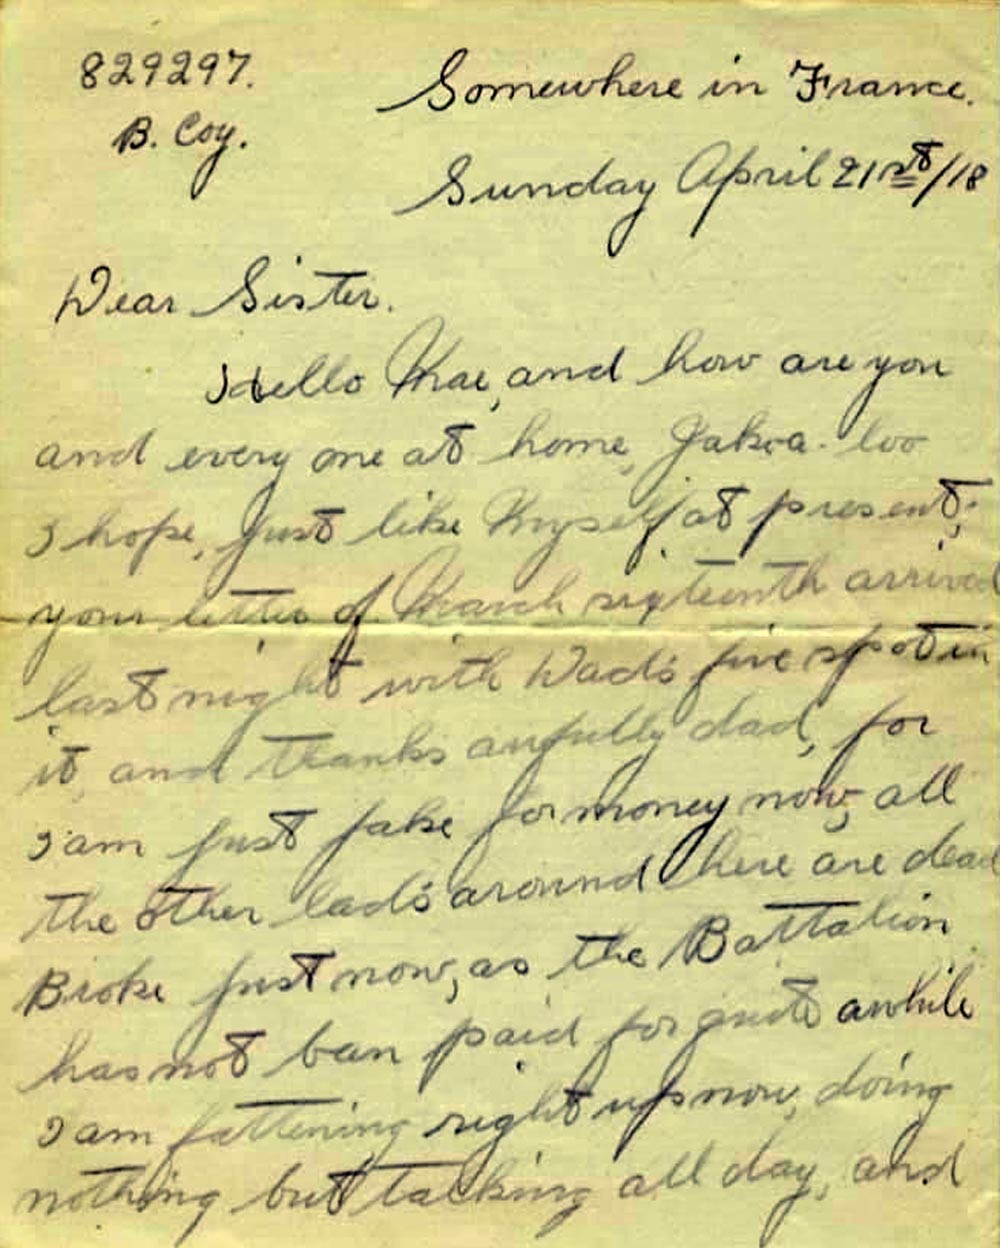 829297.
B. Coy.
Somewhere in France.
Sunday April 21st/18
Dear Sister.
Hello Mae, and how are you
and every one at home, Jake-a-loo
I hope, just like myself at present;
your letter of March sixteenth arrived
last night with Dad's five spot in
it, and thanks awfully dad, for
I am just jake for money now, all
the other lads around here are dead
Broke just now, as the Battalion
has not ben paid for quite awhile
I am fattening right up now, doing
nothing but talking all day, and